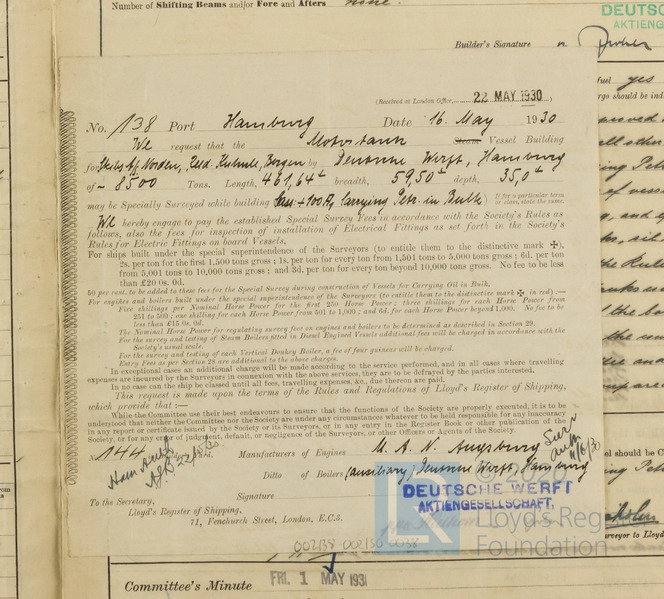 Number of Shifting Beams and/or Fore and Afters none.
DEUTSCHE
AKTIENG
Builder's Signature
fuel yes
rgo should be indi
(Received at London Office, 22 MAY 1930)
No. 138 Port Hamburg Date 16. May 1930
We request that the Motortank Steam Vessel Building
for Skibs A/J Norden, Bergen by Deutsche Werft, Hamburg
of ~ 8500 Tons. Length, 461,64' breadth, 59,50' depth, 35,0'
may be Specially Surveyed while building Class +100A, Carrying Petr. in Bulk If for a particular term or class, state the same.
We hereby engage to pay the established Special Survey Fees in accordance with the Society's Rules as
follows, also the fees for inspection of installation of Electrical Fittings as set forth in the Society's
Rules for Electric Fittings on board Vessels,
For ships built under the special superintendence of the Surveyors (to entitle them to the distinctive mark ✠),
2s. per ton for the first 1,500 tons gross; 1s. per ton for every ton from 1,501 tons to 5,000 tons gross; 6d. per ton
from 5,001 tons to 10,000 tons gross; and 3d. per ton for every ton beyond 10,000 tons gross. No fee to be less
than £20 0s. 0d.
50 per cent. to be added to these fees for the Special Survey during construction of Vessels for Carrying Oil in Bulk.
For engines and boilers built under the special superintendence of the Surveyors (to entitle them to the distinctive mark ✠ in red) :—
Five shillings per Nominal Horse Power for the first 250 Horse Power; three shillings for each Horse Power from
251 to 500; one shilling for each Horse Power from 501 to 1,000; and 6d. for each Horse Power beyond 1,000. No fee to be
less than £15 0s. 0d.
The Nominal Horse Power for regulating survey fees on engines and boilers to be determined as described in Section 29.
For the survey and testing of Steam Boilers fitted in Diesel Engined Vessels additional fees will be charged in accordance with the
Society's usual scale.
For the survey and testing of each Vertical Donkey Boiler, a fee of four guineas will be charged.
Entry Fees as per Section 28 are additional to the above charges.
In exceptional cases an additional charge will be made according to the service performed, and in all cases where travelling
expenses are incurred by the Surveyors in connexion with the above services, they are to be defrayed by the parties interested.
In no case can the ship be classed until all fees, travelling expenses, &c., due thereon are paid.
This request is made upon the terms of the Rules and Regulations of Lloyd's Register of Shipping,
which provide that :—
While the Committee use their best endeavours to ensure that the functions of the Society are properly executed, it is to be
understood that neither the Committee nor the Society are under any circumstances whatever to be held responsible for any inaccuracy
in any report or certificate issued by the Society or its Surveyors, or in any entry in the Register Book or other publication of the
Society, or for any error of judgment, default, or negligence of the Surveyors, or other Officers or Agents of the Society.
No 144 Manufacturers of Engines M.A.N. Augsburg
Ditto of Boilers (auxiliary) Deutsche Werft, Hamburg
Signature DEUTSCHE WERFT
AKTIENGESELLSCHAFT,
To the Secretary,
Lloyd's Register of Shipping,
71, Fenchurch Street, London, E.C.3.
Lloyd's Register
Foundation
002138-002150-0038
Committee's Minute FRI. 1 MAY 1931